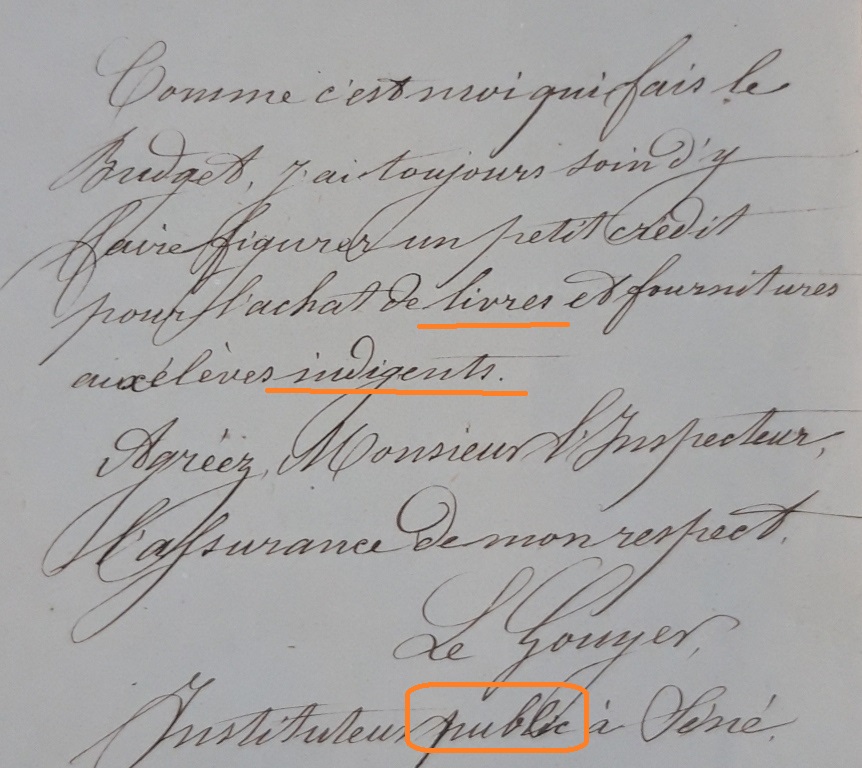 Comme c'est moi qui fais le
Budget, j'ai toujours soin d'y
faire figurer un petit crédit
pour l'achat de livres et fournitures
aux élèves indigents.
Agréez, Monsieur l'Inspecteur,
l'assurance de mon respect.
Le Gouyer,
Instituteur public à Séné.